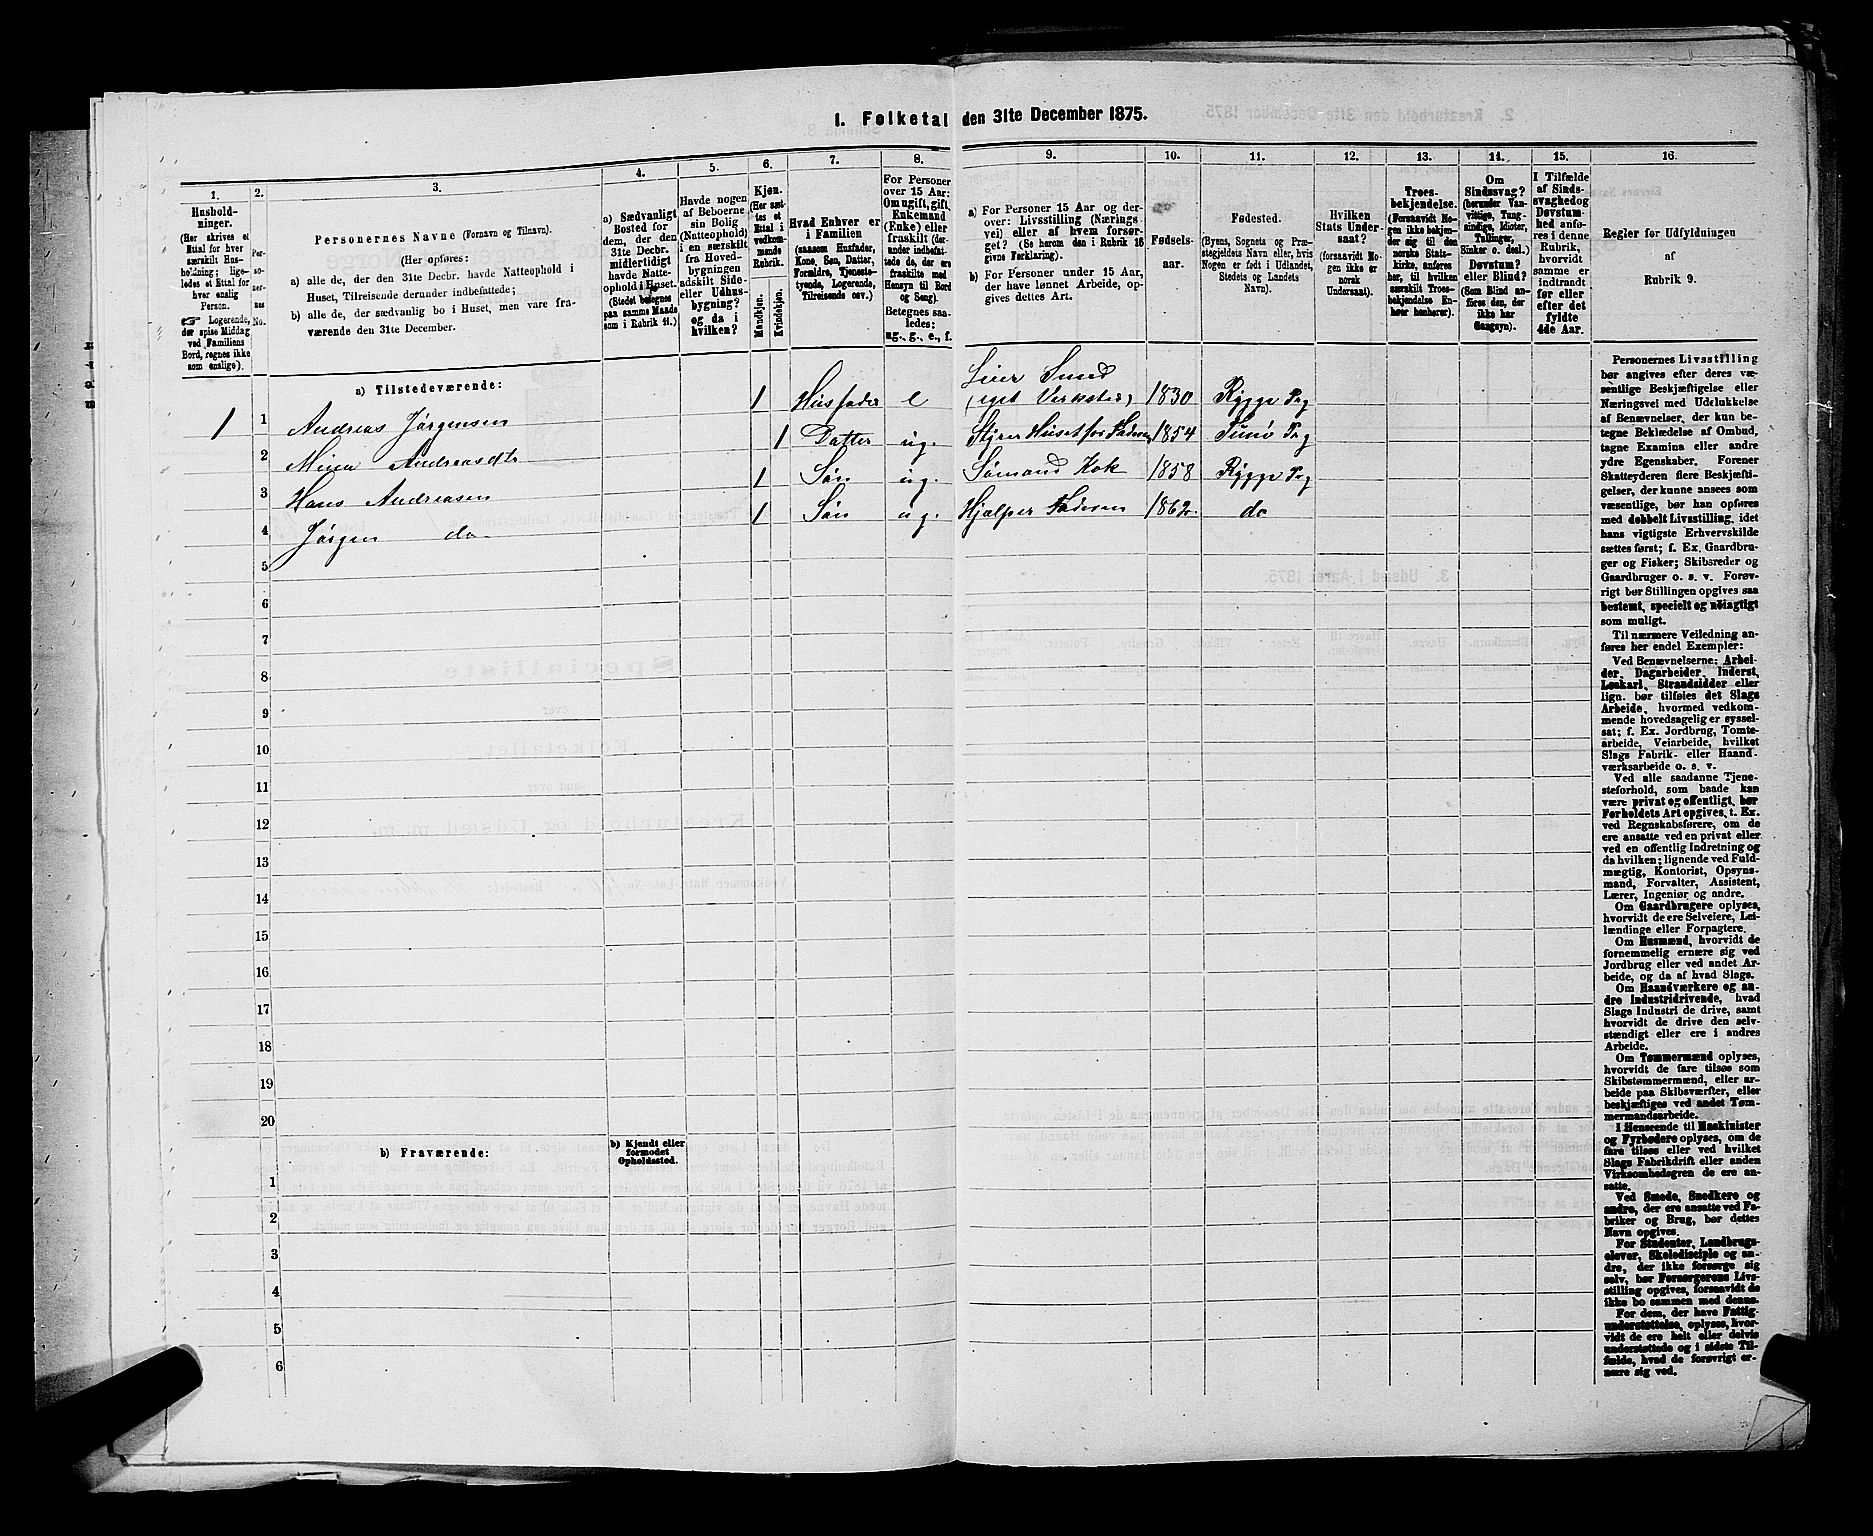 1. Folketal den 31te December 1875.
1.
2.
3.
4.
5.
6.
7.
8.
9.
10.
11.
12.
13.
14.
15.
16.
Hushold-
ninger.
(Her skrives et
Ettal for hver
særskilt Hus-
holdning; lige-
ledes et Ettal for
hver enslig
Person.
Logerende,
der spise Middag
ved Familiens
Bord, regnes ikke
som enslige).
Per-
so-
ner-
nes
No.
Personernes Navne (Fornavn og Tilnavn).
(Her opføres:
a) alle de, der den 31te Decbr. havde Natteophold i
Huset, Tilreisende derunder indbefattede;
b) alle de, der sædvanlig bo i Huset, men vare fra-
værende den 31te December.
a) Sædvanligt
Bosted for
dem, der den
31te Decbr.
midlertidigt
havde Natte-
ophold i Huset.
(Stedet betegnes
paa samme Maade
som i Rubrik 11.)
Havde nogen
af Beboerne
sin Bolig
(Natteophold)
i en særskilt
fra Hoved-
bygningen
adskilt Side-
eller Udhus-
bygning?
og da i
hvilken?
Kjøn.
(Her sæt-
tes et
Ettal i
vedkom-
mende
Rubrik.
Mandkjøn.
Kvindekjøn.
Hvad Enhver er
i Familien
(saasom Husfader,
Kone, Søn, Datter,
Forældre, Tjeneste-
tyende, Logerende,
Tilreisende osv.)
For Personer
over 15 Aar:
Om ugift, gift,
Enkemand
(Enke) eller
fraskilt (der-
under indbefat-
tede de, der ere
fraskilte med
Hensyn til Bord
og Seng).
Betegnes saa-
ledes:
ug., g., e., f.
a) For Personer 15 Aar og der-
over: Livsstilling (Nærings-
vei) eller af hvem forsør-
get? (Se herom den i Rubrik 16
givne Forklaring).
b) For Personer under 15 Aar,
der have lønnet Arbeide, op-
gives dettes Art.
Fødsels-
aar.
Fødested.
(Byens, Sognets og Præ-
stegjeldets Navn eller, hvis
Nogen er født i Udlandet,
Stedets og Landets
Navn).
Hvilken
Stats Under-
saat?
(forsaavidt No-
gen ikke er
norsk
Undersaat).
Troes-
bekjendelse.
(Forsaavidt No-
gen ikke bekjen-
der sig til den
norske Stats-
kirke, anføres
her, til hvilken
særskilt Troes-
bekjendelse En-
hver henhører).
Om
Sindssvag?
(herunder Van-
vittige, Tung-
sindige, Idioter,
Tullinger,
Sinker o. desl.)
Døvstum?
eller Blind?
(Som Blind an-
føres den, der
ikke har
Gangsyn).
I Tilfælde
af Sinds-
svaghed og
Døvstum-
hed anfø-
res i denne
Rubrik,
hvorvidt
samme er
indtraadt
før eller
efter det
fyldte
4de Aar.
Regler for Udfyldningen
af
Rubrik 9.
a) Tilstedeværende:
1 1 Andreas Jørgensen 1 Husfader e Leier Smed (eget Verksted) 1830 Rygge Prg
2 Mina Andreasdtr 1 Datter ug. Styrer Huset for Faderen 1854 Prg
3 Hans Andreasen 1 Søn ug. Sømand Kok 1858 Rygge Prg
4 Jørgen do 1 Søn ug. Hjælper Faderen 1862 do
5
6
7
8
9
10
11
12
13
14
15
16
17
18
19
20
b) Fraværende:
b) Kjendt eller
formodet
Opholdssted.
1
2
3
4
5
6
Personernes Livsstilling
bør angives efter deres væ-
sentlige Beskjæftigelse eller
Næringsvei med Udelukkelse
af Benævnelser, der kun be-
tegne Beklædelse af Ombud,
tagne Examina eller andre
ydre Egenskaber. Forener
Skatteyderen flere Beskjæfti-
gelser, der kunne ansees som
væsentlige, bør han opføres
med dobbelt Livsstilling, idet
hans vigtigste Erhvervskilde
sættes først; f. Ex. Gaardbru-
ger og Fisker; Skibsreder og
Gaardbruger o. s. v. Forøv-
rigt bør Stillingen opgives saa
bestemt, specielt og nøiagtigt
som muligt.
Til nærmere Veiledning an-
føres her endel Exempler:
Ved Benævnelserne: Arbei-
der, Dagarbeider, Inderst,
Løskarl, Strandsidder eller
lign. bør tilføies det Slags
Arbeide, hvormed vedkom-
mende hovedsagelig er syssel-
sat; f. Ex. Jordbrug, Tomte-
arbeide, Veiarbeide, hvilket
Slags Fabrik- eller Haand-
værksarbeide o. s. v.
Ved alle saadanne Tjene-
steforhold, som baade kan
være privat og offentligt, bør
Forholdets Art opgives, t. Ex.
ved Regnskabsførere, om de
ere ansatte ved en privat eller
ved en offentlig Indretning og
da hvilken; lignende ved Fuld-
mægtig, Kontorist, Opsyns-
mand, Forvalter, Assistent,
Lærer, Ingeniør og andre.
Om Gaardbrugere oplyses,
hvorvidt de ere Selveiere, Lei-
lændinge eller Forpagtere.
Om Husmænd, hvorvidt de
fornemmelig ernære sig ved
Jordbrug eller ved andet Ar-
beide, og da af hvad Slags.
Om Haandværkere og an-
dre Industridrivende, hvad
Slags Industri de drive, samt
hvorvidt de drive den selv-
stændigt eller ere i andres
Arbeide.
Om Tømmermænd oplyses,
hvorvidt de fare tilsøs som
Skibstømmermænd, eller ar-
beide paa Skibsværfter, eller
beskjæftiges ved andet Tøm-
mermandsarbeide.
I Henseende til Maskinister
og Fyrbødere oplyses, om de
fare tilsøs eller ved hvilket
Slags Fabrikdrift eller anden
Virksomhedsgren de ere an-
satte.
Ved Smede, Snedkere og
andre, der ere ansatte ved Fa-
briker og Brug, bør dettes
Navn opgives.
For Studenter, Landbrugs-
elever, Skoledisciple og an-
dre, der ikke forsørge sig
selv, bør Forsørgerens Livs-
stilling opgives, forsaavidt de
ikke bo sammen med denne.
For dem, der have Fattig-
understøttelse, oplyses, hvor-
vidt de ere helt eller delvis
understøttede og i sidste Til-
fælde, hvad de forøvrigt er-
nære sig ved.